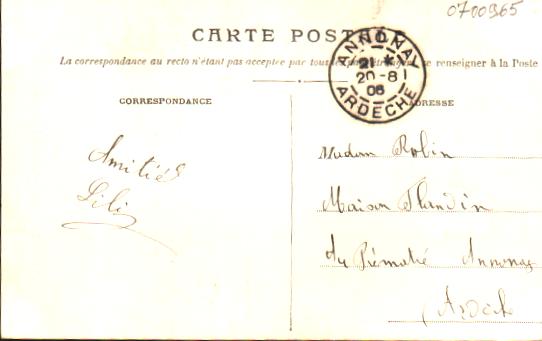 0700965
CARTE POSTALE
La correspondance au recto n'étant pas acceptée par tous les pays étrangers, se renseigner à la Poste
ANNONAY
21 *
20-8
06
ARDECHE
CORRESPONDANCE
ADRESSE
Amitiés
Lili
Madame Robin
Maison Flandin
Annonay
Ardèche